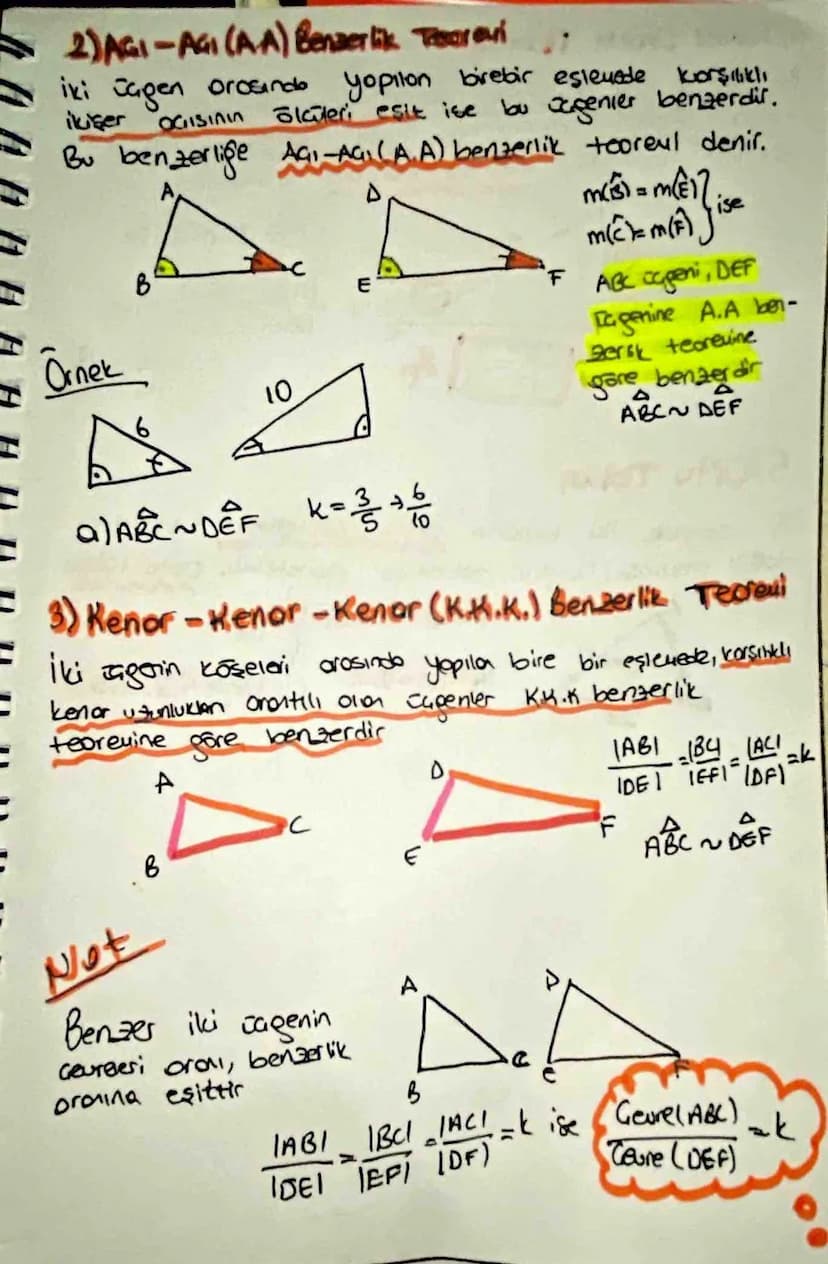 2) Açı - Açı (A.A) Benzerlik Teoremi
İki üçgen arasında yapılan birebir eşlemede karşılıklı
ikişer açısının ölçüleri eşit ise bu üçgenler benzerdir.
Bu benzerliğe Açı-Açı (A.A) benzerlik teoremi denir.
A
B
C
D
E
F
m(B̂) = m(Ê)
m(Ĉ) = m(F̂) } ise
ABC üçgeni, DEF
üçgenine A.A ben-
zerlik teoremine
göre benzerdir
ABC ~ DEF
Örnek
6
10
a) ABC ~ DEF k = 3/5 → 6/10
3) Kenar - Kenar - Kenar (K.K.K.) Benzerlik Teoremi
İki üçgenin köşeleri arasında yapılan bire bir eşlemede, karşılıklı
kenar uzunlukları orantılı olan üçgenler K.K.K benzerlik
teoremine göre benzerdir
A
B
C
D
E
F
|AB|/|DE| = |BC|/|EF| = |AC|/|DF| = k
ABC ~ DEF
Not
Benzer iki üçgenin
çevreleri oranı, benzerlik
oranına eşittir
A
B
C
D
E
F
|AB|/|DE| = |BC|/|EF| = |AC|/|DF| = k ise Çevre(ABC)/Çevre(DEF) = k